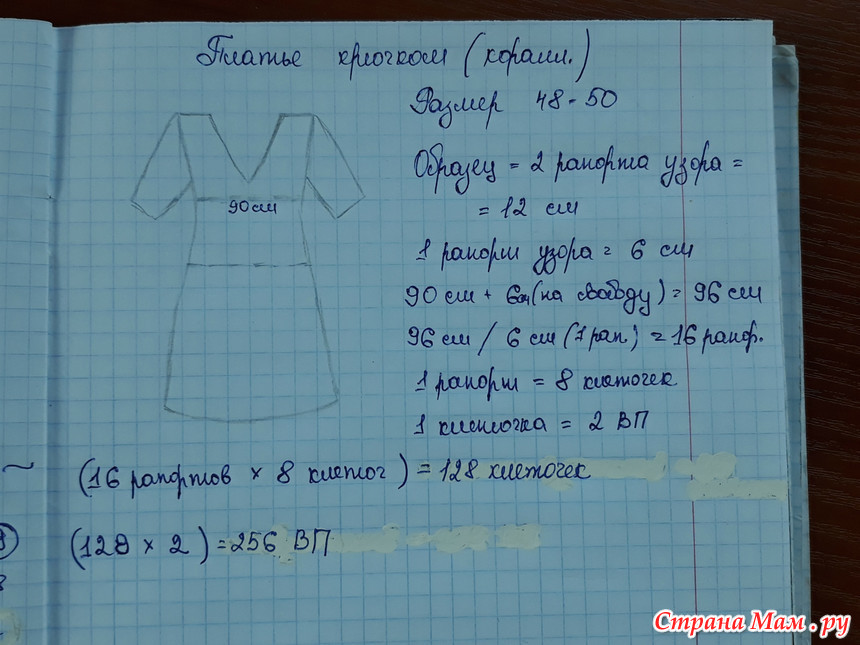 Платье крючком (коралл.)
Размер 48-50
90 см
Образец = 2 рапорта узора =
= 12 см
1 рапорт узора = 6 см
90 см + 6 см (на свободу) = 96 см
96 см / 6 см (1 рап.) = 16 рапф.
1 рапорт = 8 клеточек
1 клеточка = 2 ВП
(16 рапортов × 8 клеточ) = 128 клеточек
(128 × 2) = 256 ВП
Страна Мам.ру